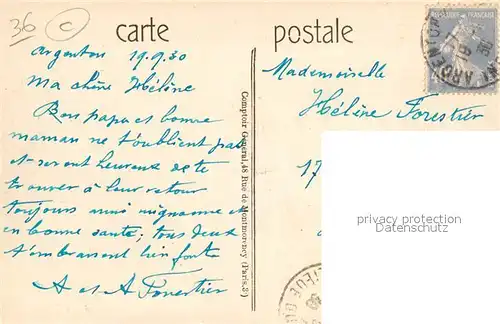 36
C
carte postale
Argenton 19.9.30
Ma chère Hélène
Bon papa et bonne
maman ne t'oublient pas
et seront heureux de te
trouver à leur retour
toujours aussi mignonne et
en bonne santé; tous deux
t'embrassent bien fort
A et A Forestier
Comptoir Général, 48 Rue de Montmorency (Paris, 3e)
Mademoiselle
Hélène Forestier
17
privacy protection
Datenschutz